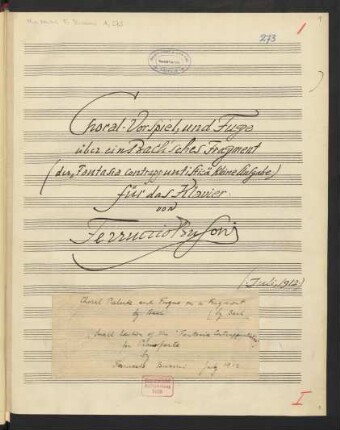 273
1
Choral-Vorspiel und Fuge
über ein Bachsches Fragment
(der Fantasia contrappuntistica kleine Ausgabe)
für das Klavier
von
Ferruccio Busoni
(Juli 1912)
Choral Prelude and Fugue on a Fragment
by Bach
(by Bach
(Small Edition of the "Fantasia Contrappuntistica"
for Pianoforte
by
Ferruccio Busoni July 1912
I